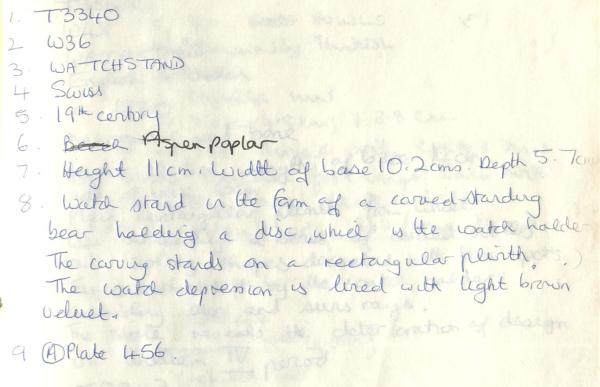 1. T3340
2 W36
3. WATTCHSTAND
4 Swiss
5. 19th century
6. Beech Aspen poplar
7. Height 11cm. Width of base 10.2cms. Depth 5.7cm
8. Watch stand in the form of a carved standing
bear holding a disc, which is the watch holder
The carving stands on a rectangular plinth.
The watch depression is lined with light brown
velvet.
9 (A) Plate 456.